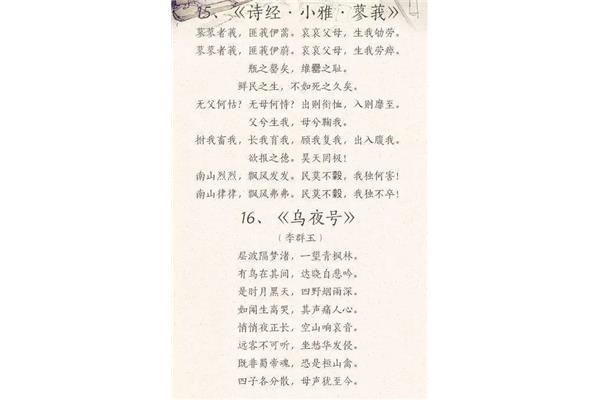 15、《诗经·小雅·蓼莪》
蓼蓼者莪，匪莪伊蒿。哀哀父母，生我劬劳。
蓼蓼者莪，匪莪伊蔚。哀哀父母，生我劳瘁。
瓶之罄矣，维罍之耻。
鲜民之生，不如死之久矣。
无父何怙？无母何恃？出则衔恤，入则靡至。
父兮生我，母兮鞠我。
拊我畜我，长我育我，顾我复我，出入腹我。
欲报之德。昊天罔极！
南山烈烈，飘风发发。民莫不穀，我独何害！
南山律律，飘风弗弗。民莫不穀，我独不卒！
16、《乌夜号》
（李群玉）
层波隔梦渚，一望青枫林。
有鸟在其间，达晓自悲吟。
是时月黑天，四野烟雨深。
如闻生离哭，其声痛人心。
悄悄夜正长，空山响哀音。
远客不可听，坐愁华发侵。
既非蜀帝魂，恐是桓山禽。
四子各分散，母声犹至今。